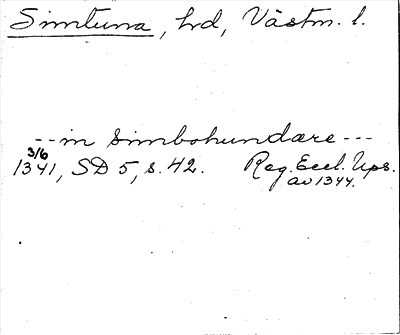 Simtuna, hd, Västm. l.
-- in simbohundare ---
3/6
1341, SD 5, s. 42. Reg. Eccl. Ups.
av 1344.